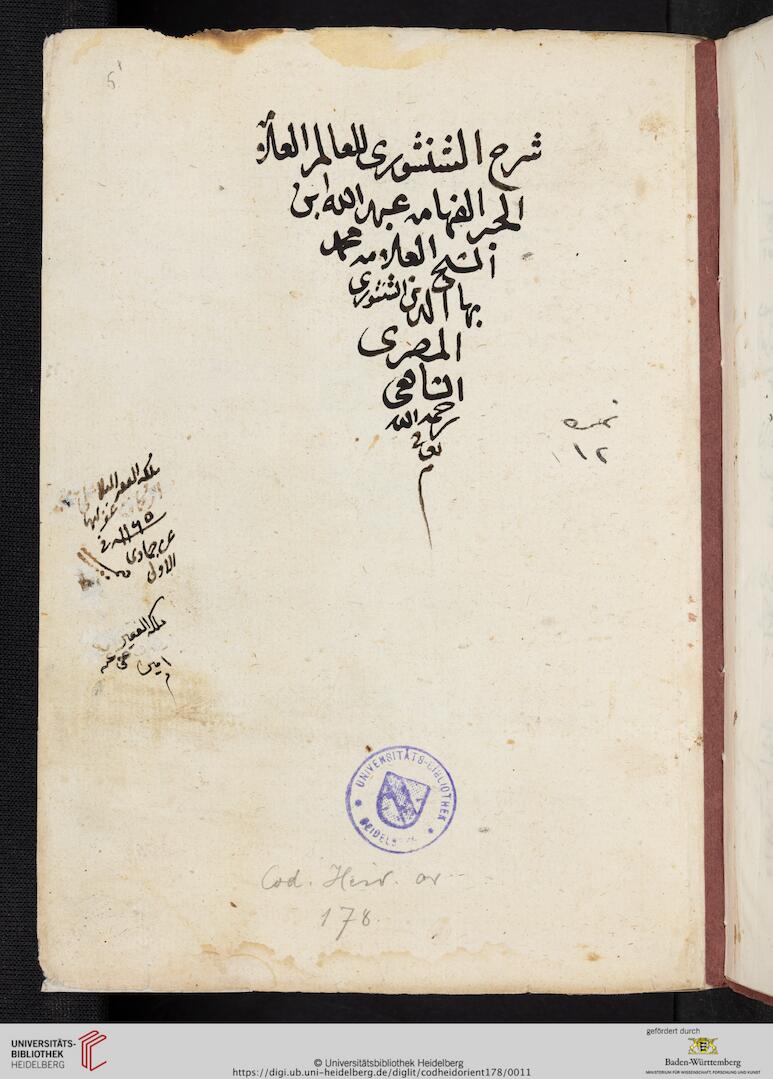 شرح الشنشورى للعالم العلامه
الحبر الفهامه عبد الله ابن
الشيخ العلامه محمد
بها الدين الشنشورى
المصرى
الشافعى
رحمه الله
تعالى
م
نمره
١٢
ملكه الفقير
١١٦٥
جمادى
الاول
ملكه الفقير
امين عفى عنه
م
UNIVERSITÄTS-BIBLIOTHEK
HEIDELB
Cod. Heid. or.
178.
UNIVERSITÄTS-
BIBLIOTHEK
HEIDELBERG
© Universitätsbibliothek Heidelberg
https://digi.ub.uni-heidelberg.de/diglit/codheidorient178/0011
gefördert durch
Baden-Württemberg
MINISTERIUM FÜR WISSENSCHAFT, FORSCHUNG UND KUNST